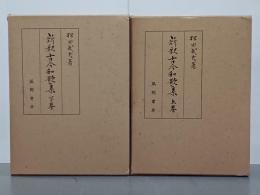 松田武夫著
新釈古今和歌集 上巻
風間書房
松田武夫著
新釈古今和歌集 下巻
風間書房